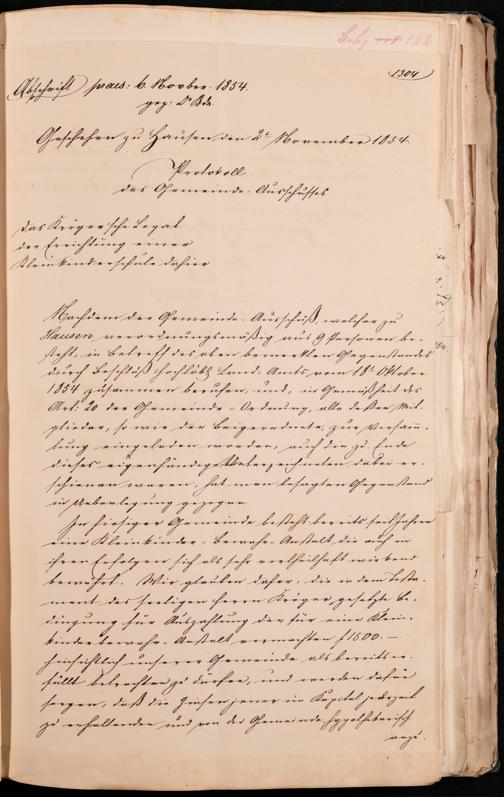 Beleg 122
1304
Abschrift praes: 6 Novber. 1854.
gez: Dr
Geschehen zu Hausen den 2t November 1854.
Protokoll
des Gemeinde-Ausschusses
das Kröger'sche Legat
der Errichtung einer
Kleinkinderschule dahier
Nachdem der Gemeinde-Ausschuß, welcher zu
Hausen verordnungsmäßig aus 9 Personen be-
steht, in Betreff des oben bemerkten Gegenstandes
durch Beschluß Land. Amts vom 18t Oktober
1854 zusammen berufen, und, in Gemäßheit des
Art: 20 der Gemeinde-Ordnung, alle dessen Mit-
glieder, so wie der Beigeordnete, zur Versamm-
lung eingeladen worden, auch die zu Ende
dieses eigenhändig Unterzeichneten dabei er-
schienen waren, hat man besagten Gegenstand
in Ueberlegung gezogen
In hiesiger Gemeinde besteht bereits seit Jahren
eine Kleinkinder-Bewahr-Anstalt, die auch in
ihren Erfolgen sich als sehr vortheilhaft wirkend
bewährt. Wir glauben daher, die in dem Testa-
ment des seeligen Herrn Kröger gesetzte Be-
dingung für Auszahlung der für eine Klein-
kinderbewahr-Anstalt vermachten f 1500.-
hinsichtlich unserer Gemeinde als bereits er-
füllt betrachten zu dürfen, und werden dafür
sorgen, daß die Zinsen jener im Kapital jederzeit
zu erhaltenden und von der Gemeinde hypothekarisch
anzu.